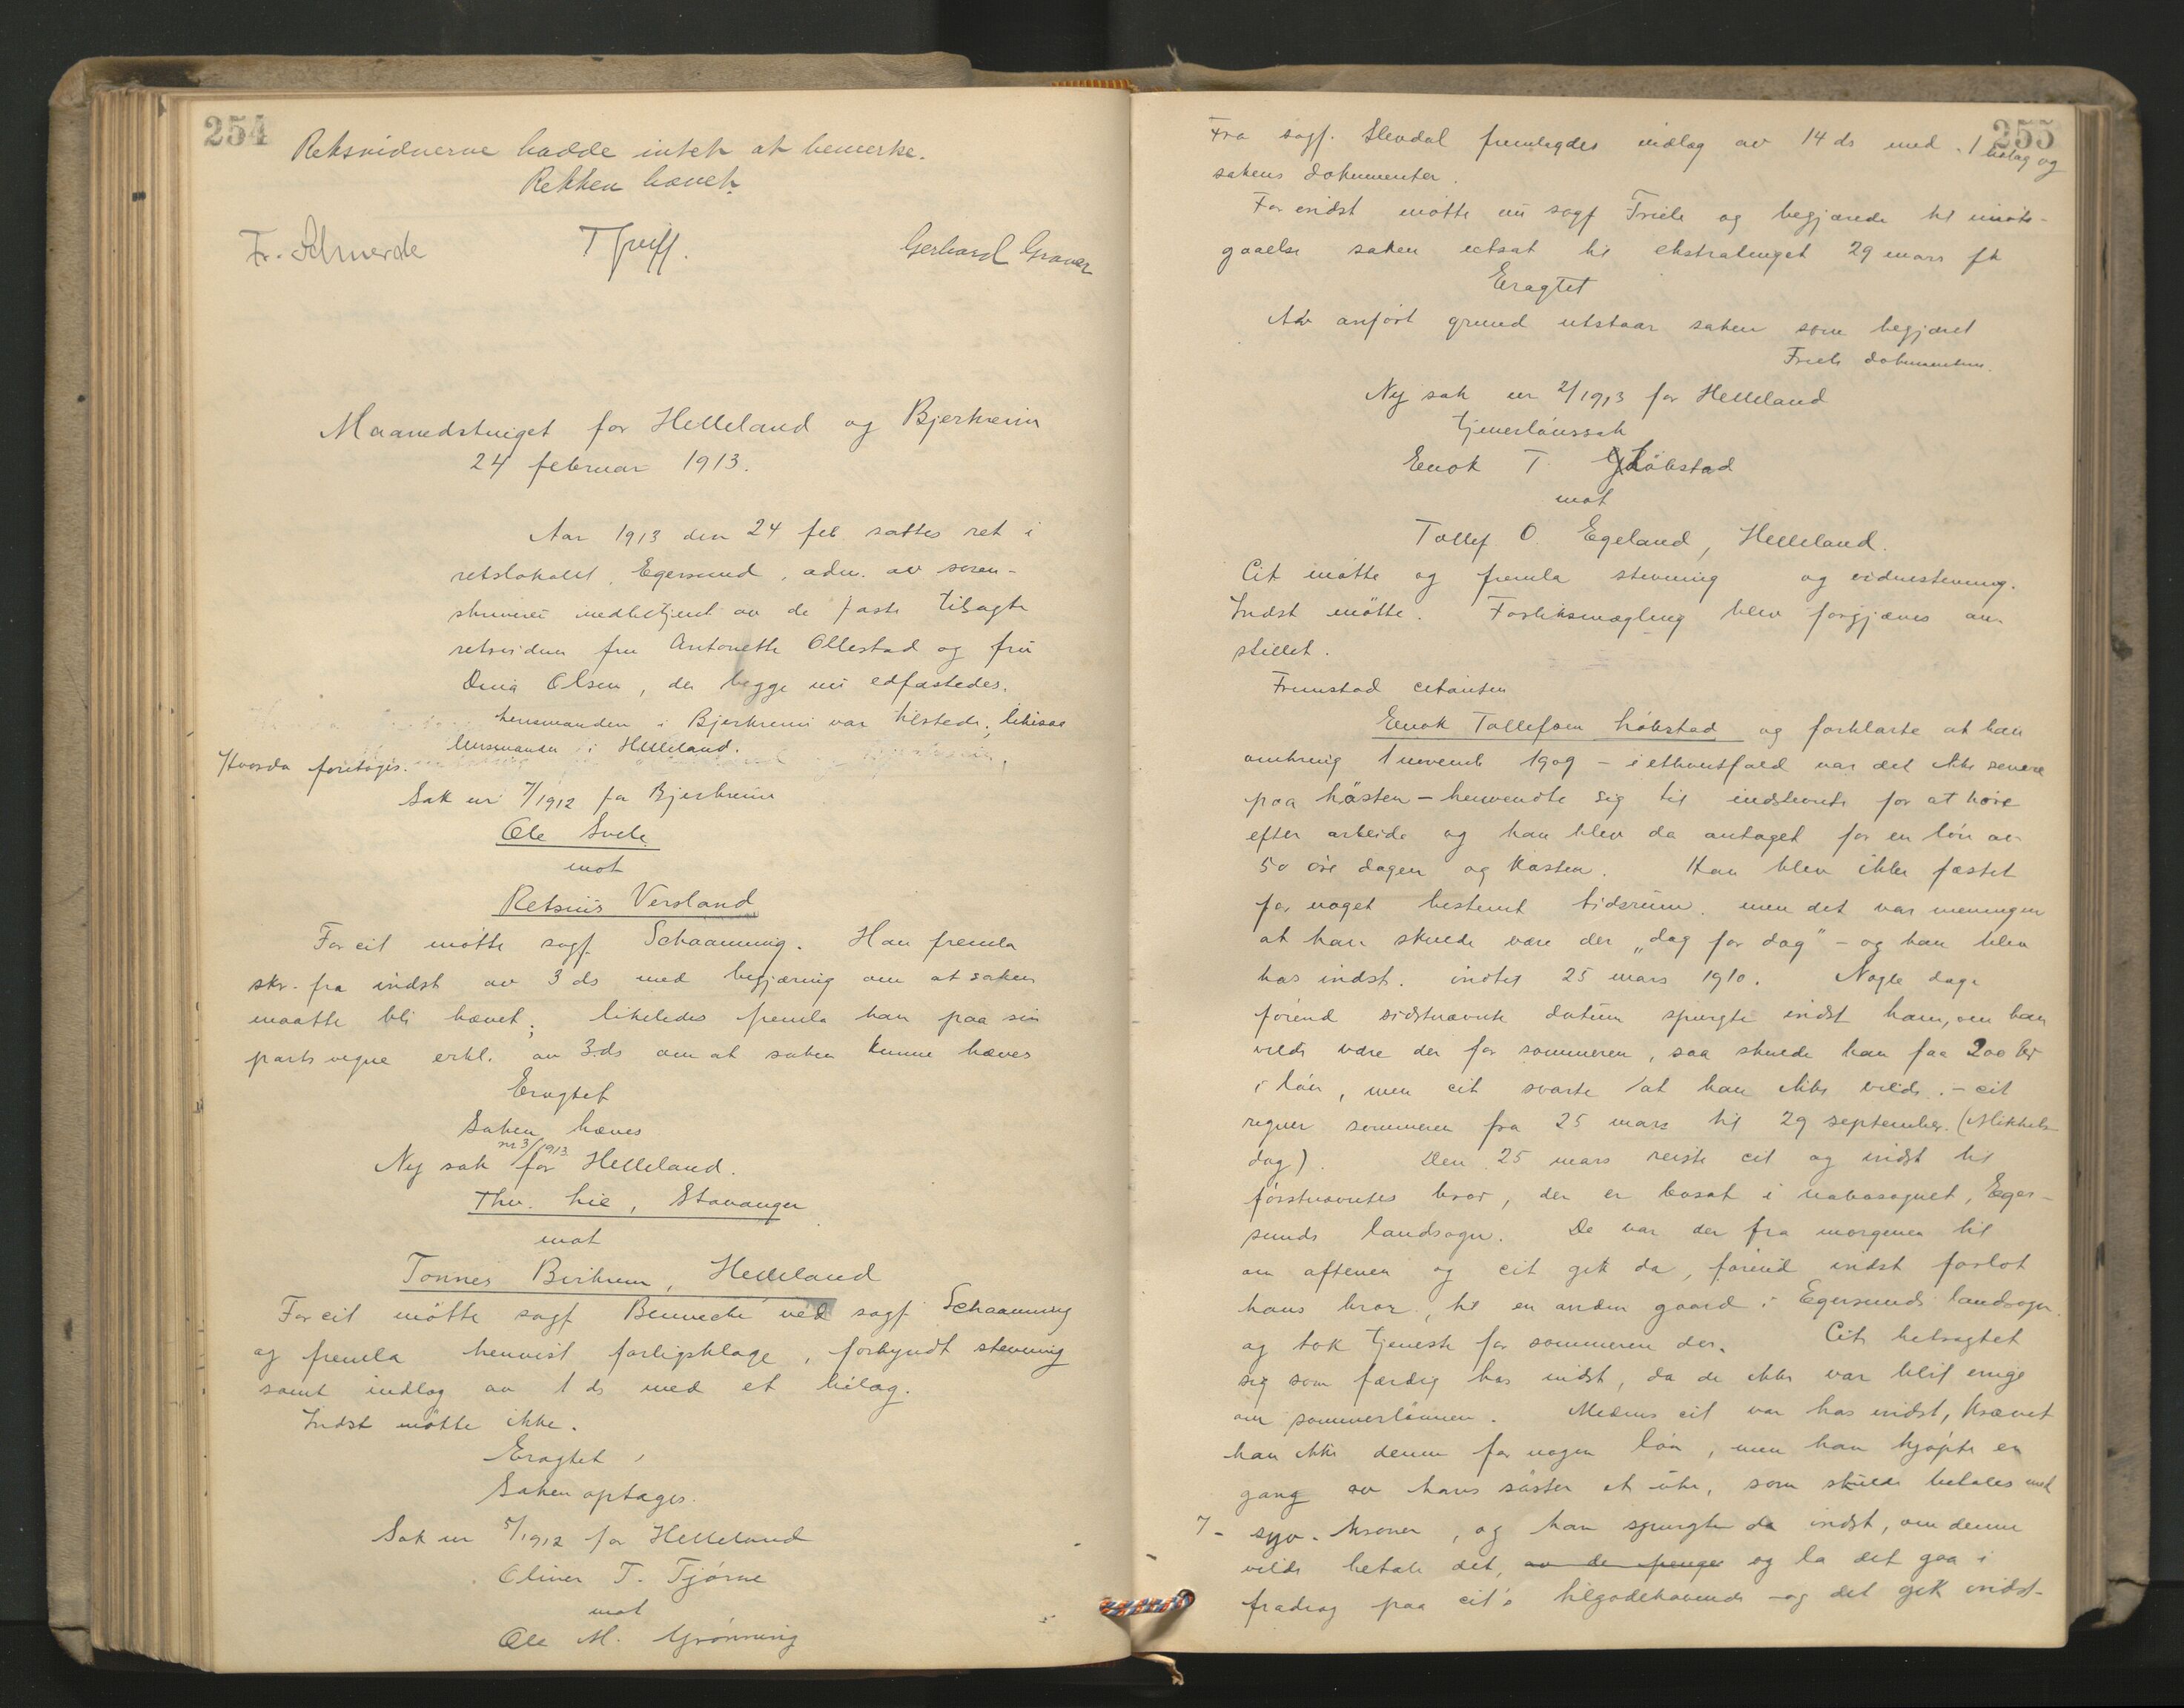 254
Retsvidnerne hadde intet at bemerke.
Retten hævet.
Fr. Schwerdt
T Greiff.
Gerhard Graver
Maanedstinget for Helleland og Bjerkreim
24 februar 1913.
Aar 1913 den 24 feb sattes ret i
retslokalet, Egersund, adm. av soren-
skriveren medbetjent av de faste tilsagte
retsvidner fru Antonette Ollestad og fru
Olsen, der begge nu edfæstedes.
Lensmanden i Bjerkreim var tilstede, likesaa
lensmanden i Helleland.
Hvorda foretoges.
Sak nr 7/1912 for Bjerkreim
Ole Svele
mot
Retsius Versland
For cit møtte sagf. Schaanning. Han fremla
skr. fra indst av 3 ds med begjæring om at saken
maatte bli hævet; likeledes fremla han paa sin
parts vegne erkl. av 3 ds om at saken kunne hæves
Eragtet
Saken hæves
nr 3/1913
Ny sak for Helleland.
Thv. Lie, Stavanger
mot
Tønnes Birkrem, Helleland
For cit møtte sagf Benneche ved sagf Schaanning
og fremla henvist forligsklage, forkyndt stevning
samt indlæg av 1 ds med et bilag.
Indst møtte ikke.
Eragtet
Saken optages.
Sak nr 5/1912 for Helleland
Oliver T. Tjørne
mot
Ole M. Grønning
255
Fra sagf. Slevdal fremlagdes indlæg av 14 ds med 1 bilag og
sakens dokumenter.
For indst møtte nu sagf Friele og begjærede til imøte-
gaaelse saken utsat til ekstratinget 29 mars ft
Eragtet
Av anført grund utstaar saken som begjæret
Friele dokumenterne.
Ny sak nr 2/1913 for Helleland
tjenerlønssak
Enok T. Løbstad
mot
Tollef O. Egeland, Helleland.
Cit møtte og fremla stevning og vidnestevning.
Indst møtte. Forliksmægling blev forgjæves an-
stillet.
Fremstod citanten
Enok Tollefsen Løbstad og forklarte at han
omkring 1 novemb 1909 - i ethvertfald var det ikke senere
paa høsten - henvendte sig til indstevnte for at høre
efter arbeide og han blev da antaget for en løn av
50 øre dagen og kosten. Han blev ikke fæstet
for noget bestemt tidsrum, men det var meningen
at han skulde være der „dag for dag" - og han blev
hos indst. indtil 25 mars 1910. Nogle dage
førend sidstnævnte datum spurgte indst ham, om han
vilde være der for sommeren, saa skulde han faa 200 kr
i løn, men cit svarte at han ikke vilde. - cit
regner sommeren fra 25 mars til 29 september. (Mikkels-
dag). Den 25 mars reiste cit og indst til
førstnævntes bror, der er bosat i nabosognet, Eger-
sunds landsogn. De var der fra morgenen til
om aftenen og cit gik da, førend indst forlot
hans bror, til en anden gaard i Egersunds landsogn
og tok tjeneste for sommeren der. Cit betragtet
sig som færdig hos indst, da de ikke var blit enige
om sommerlønnen. Medens cit var hos indst, krævet
han ikke denne for nogen løn, men han kjøpte en
gang av hans søster et uhr, som skulde betales med
7 - syv - kroner, og han spurgte da indst, om denne
vilde betale det, av de penger og la det gaa i
fradrag paa cit's tilgodehavende - og det gik indst-